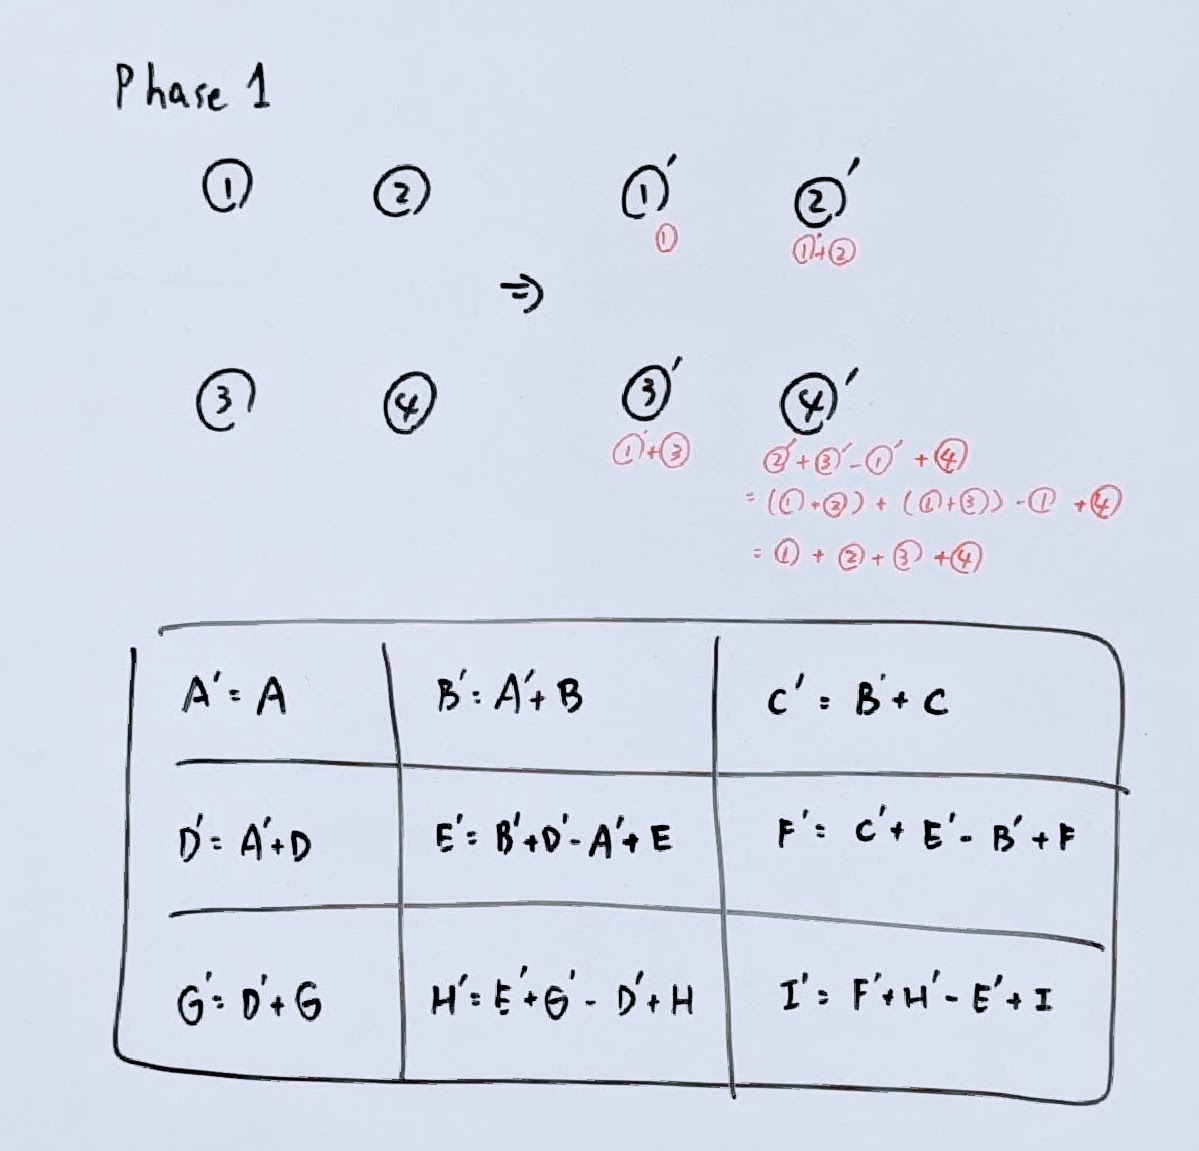 Phase 1
① ② ①′ ②′
① ①′+②
⇒
③ ④ ③′ ④′
①′+③ ②′+③′-①′+④
=(①+②)+(①+③)-①+④
=①+②+③+④
A′=A B′=A′+B C′=B′+C
D′=A′+D E′=B′+D′-A′+E F′=C′+E′-B′+F
G′=D′+G H′=E′+G′-D′+H I′=F′+H′-E′+I